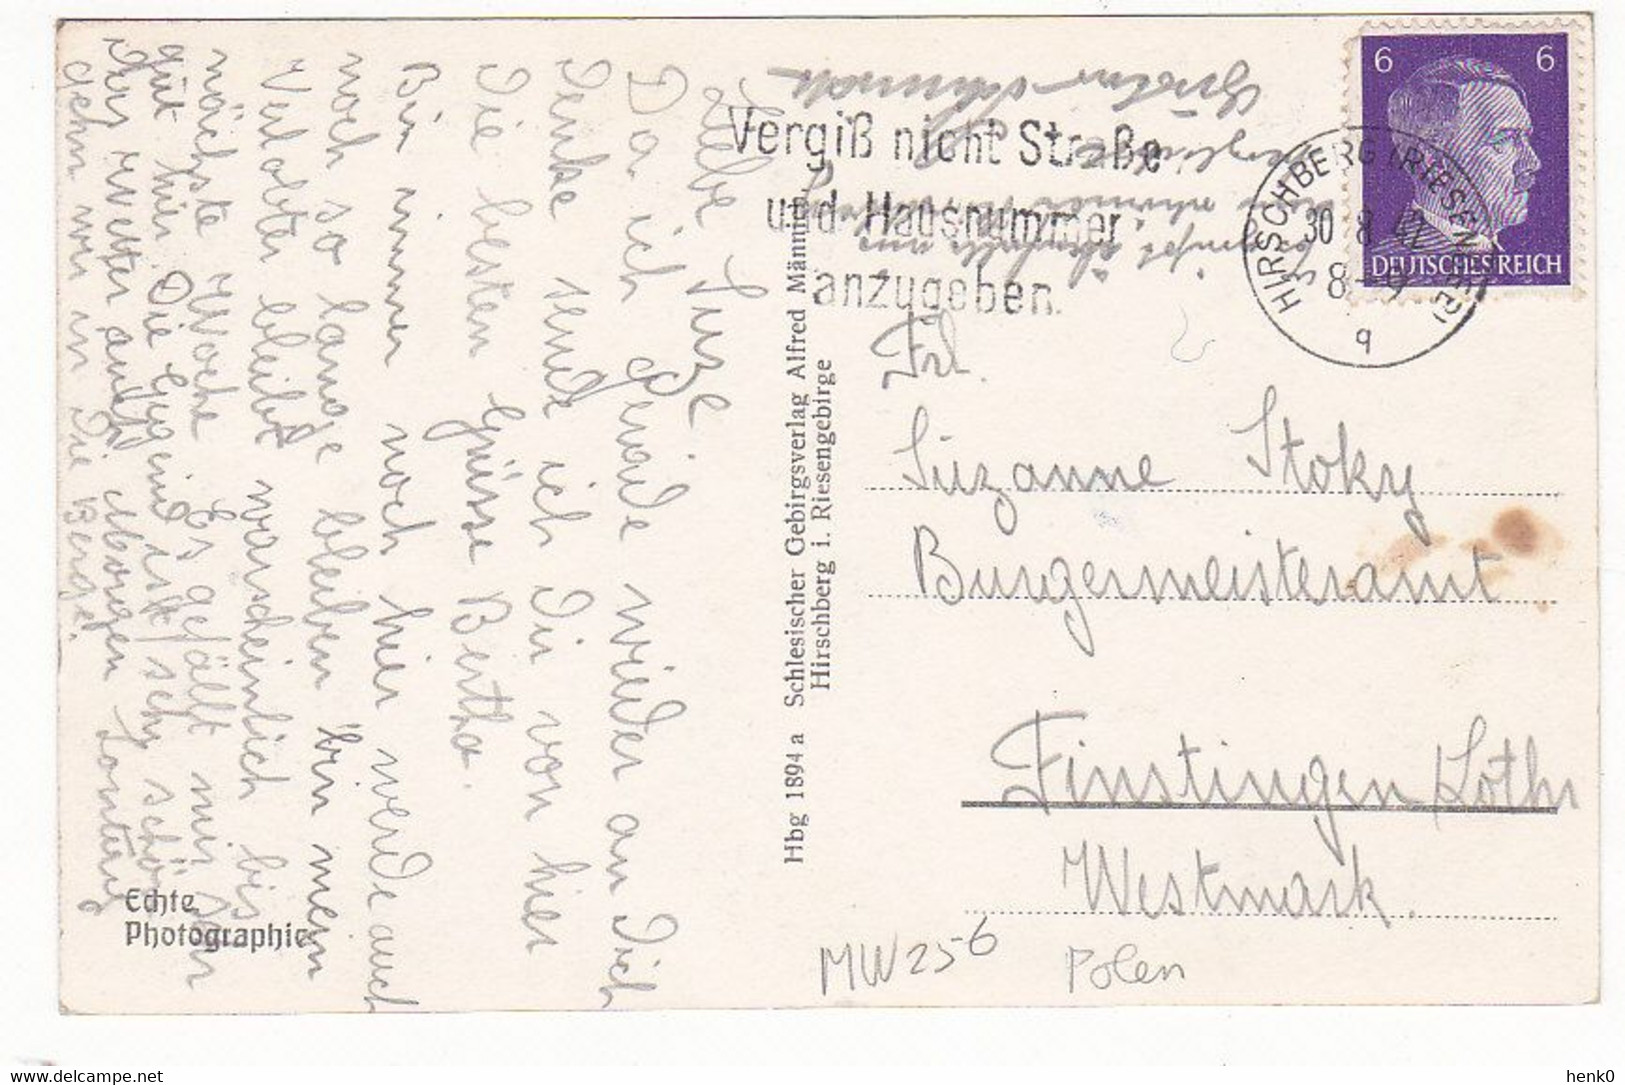 Liebe Suze
Da ich gerade wieder an Dich
denke sende ich Dir von hier
die besten Grüsse Bertha.
Bin immer noch hier werde auch
noch so lange bleiben bin mein
Verlobter bleibt warscheinlich bis
nächste Woche Es gefällt mir sehr
gut hier. Die Gegend ist sehr schön
das Wetter auch Morgen
gehn wir in die Berge.
Echte
Photographie
Hbg 1894 a Schlesischer Gebirgsverlag Alfred Männich
Hirschberg i. Riesengebirge
Vergiß nicht Straße
und Hausnummer
anzugeben.
6 6
DEUTSCHES REICH
HIRSCHBERG (RIESENGEB)
30 8 42
8-9
q
Frl.
Suzanne Stoky
Burgermeisteramt
Finstingen Lothr
Westmark.
MW 25-6
Polen
henk0